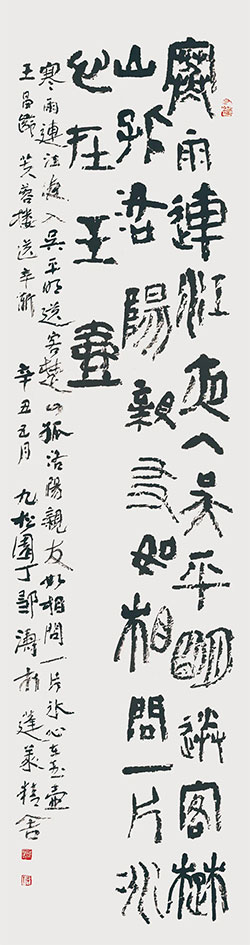 寒雨連江夜入吳平明送客楚
山孤洛陽親友如相問一片冰
心在玉壺
寒雨連江夜入吳平明送客楚山孤洛陽親友如相問一片冰心在玉壺
王昌齡芙蓉樓送辛漸 辛丑五月 九松園丁鄒濤於蓬萊精舍